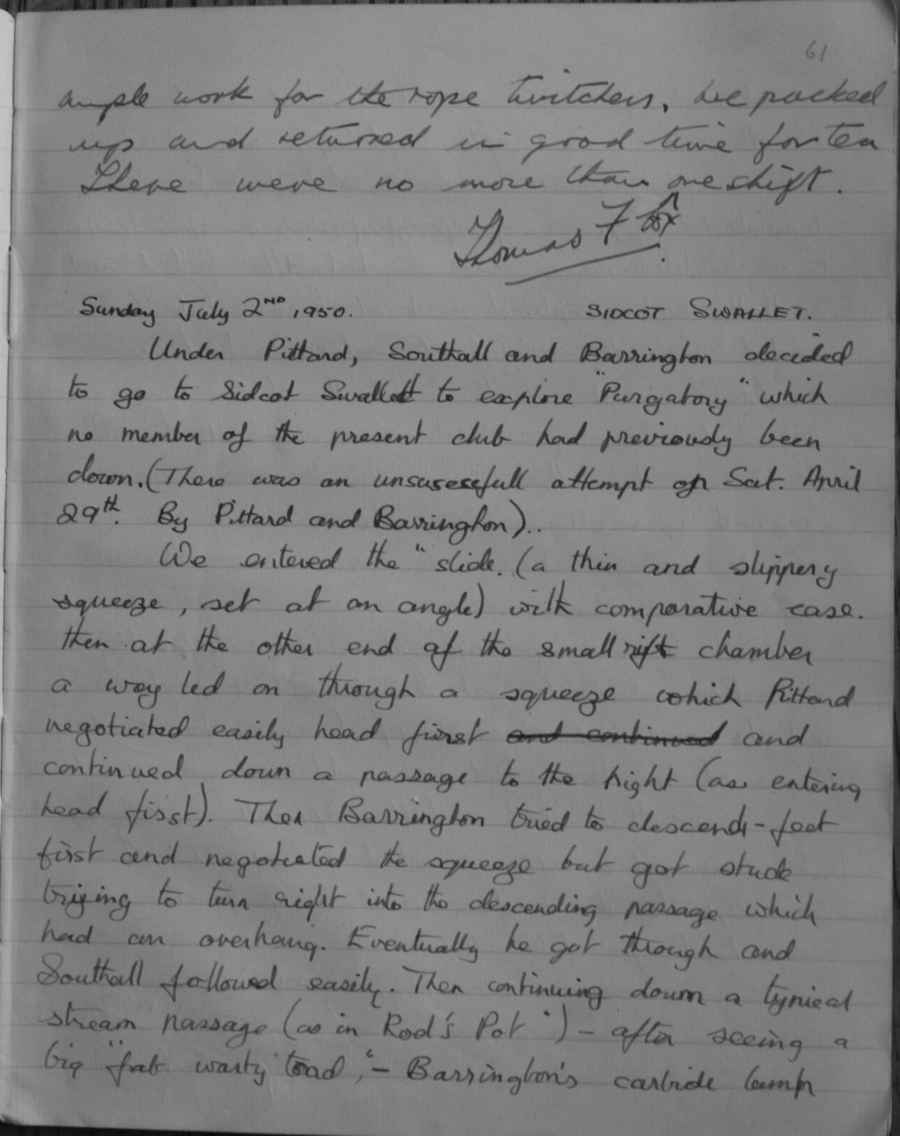 61
ample work for the rope twitchers. We packed
up and returned in good time for tea
There were no more than one shift.
Thomas F Fox
Sunday July 2ND, 1950. SIDCOT SWALLET.
Under Pittard, Southall and Barrington decided
to go to Sidcot Swallett to explore "Purgatory" which
no member of the present club had previously been
down. (There was an unsuscessfull attempt on Sat. April
29th. By Pittard and Barrington)..
We entered the "slide. (a thin and slippery
squeeze, set at an angle) with comparative ease.
then at the other end of the small rift chamber
a way led on through a squeeze which Pittard
negotiated easily head first and continued and
continued down a passage to the right (as entering
head first). Then Barrington tried to descend - feet
first and negotiated the squeeze but got stuck
trying to turn right into the descending passage which
had an overhang. Eventually he got through and
Southall followed easily. Then continuing down a typical
stream passage (as in Rod's Pot") - after seeing a
big "fat warty toad", - Barrington's carbide lamp